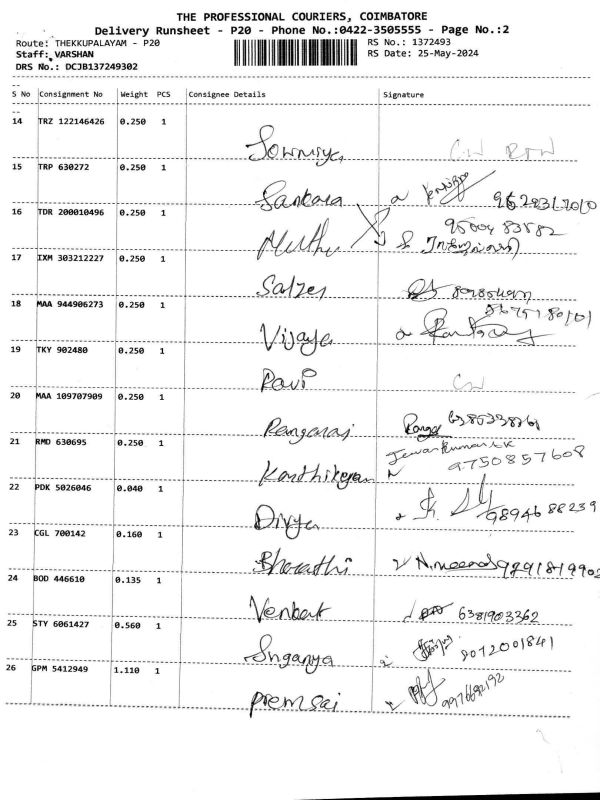 THE PROFESSIONAL COURIERS, COIMBATORE
Delivery Runsheet - P20 - Phone No.:0422-3505555 - Page No.:2
Route: THEKKUPALAYAM - P20 RS No.: 1372493
Staff: VARSHAN RS Date: 25-May-2024
DRS No.: DCJB137249302
S No Consignment No Weight PCS Consignee Details Signature
14 TRZ 122146426 0.250 1
Sowmiya
15 TRP 630272 0.250 1
Sankara
16 TDR 200010496 0.250 1 95004 83582
Muthu
17 IXM 303212227 0.250 1
Salzer
18 MAA 944906273 0.250 1
Vijaya
19 TKY 902480 0.250 1
Ravi CW
20 MAA 109707909 0.250 1
Rangaraj Ranga
21 RMD 630695 0.250 1
Karthikeyan 9750857608
22 PDK 5026046 0.040 1
Divya 9894688239
23 CGL 700142 0.160 1
Bharathi
24 BOD 446610 0.135 1
Venkat 6381903362
25 STY 6061427 0.560 1
Snganya 8072001841
26 GPM 5412949 1.110 1
Premsai